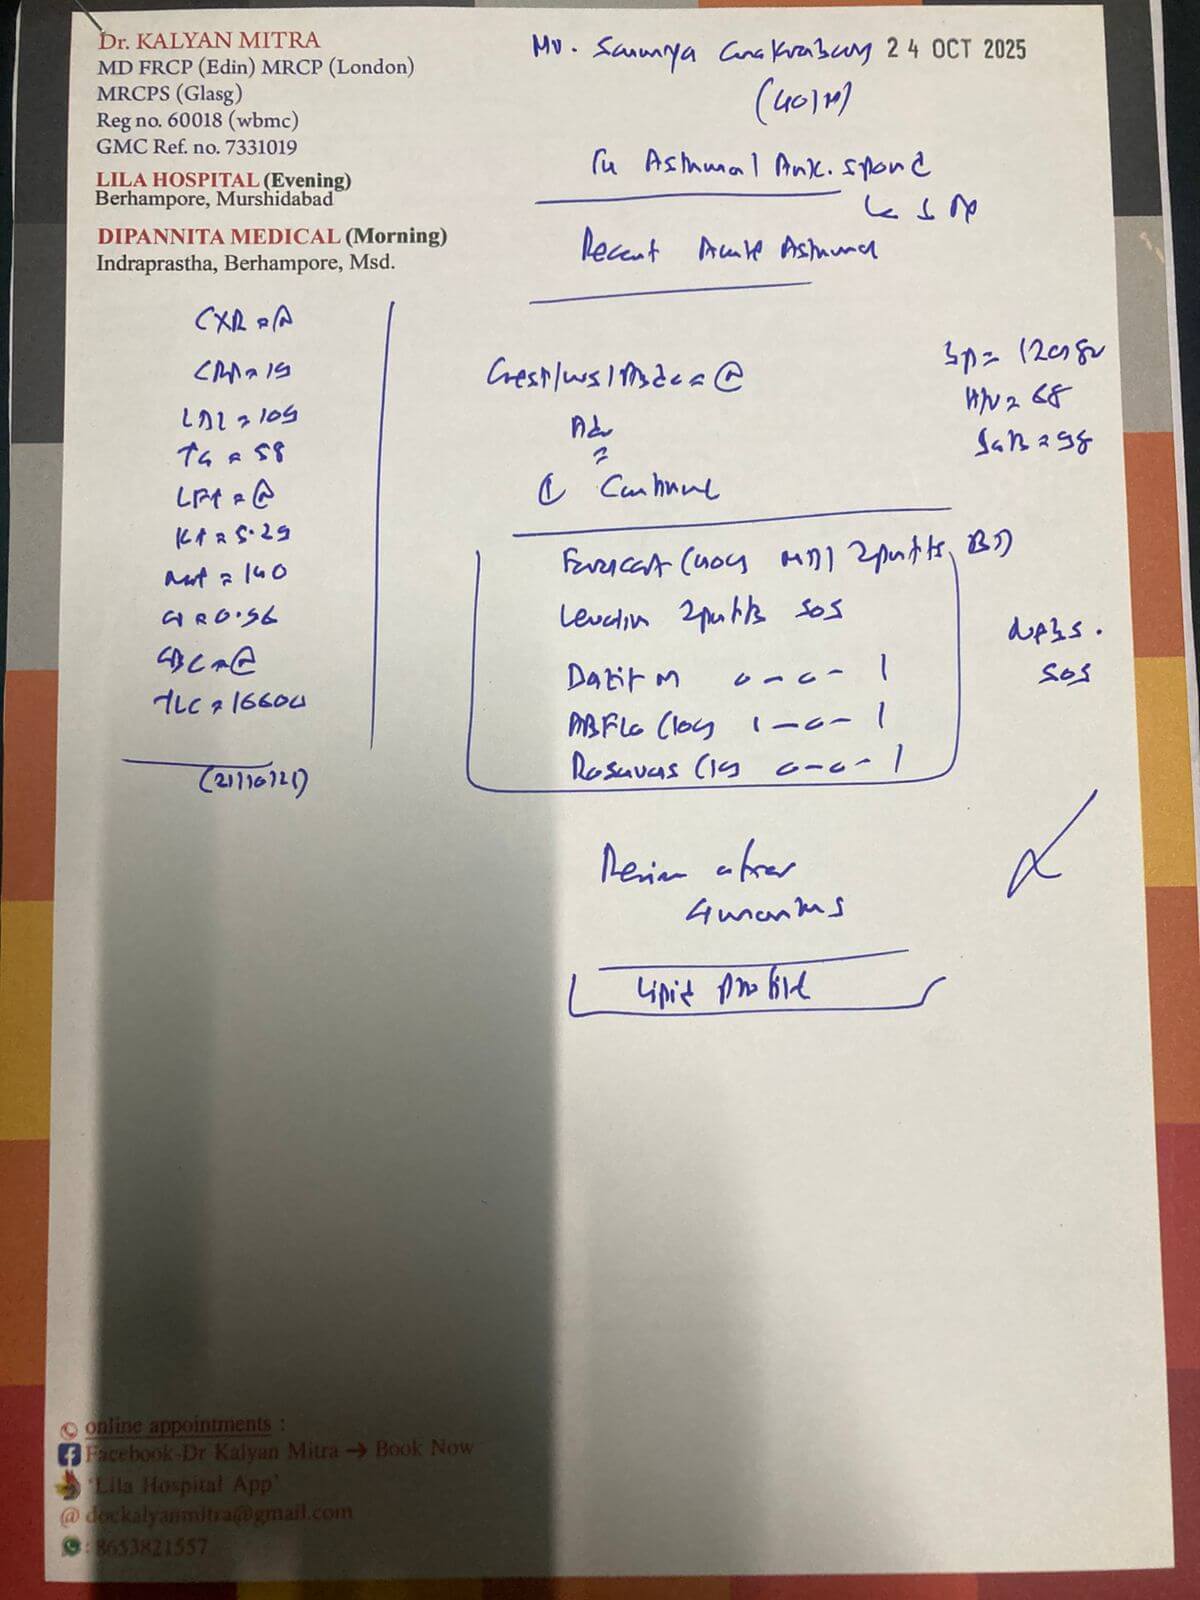 Dr. KALYAN MITRA
MD FRCP (Edin) MRCP (London)
MRCPS (Glasg)
Reg no. 60018 (wbmc)
GMC Ref. no. 7331019
LILA HOSPITAL (Evening)
Berhampore, Murshidabad
DIPANNITA MEDICAL (Morning)
Indraprastha, Berhampore, Msd.
Mr. 24 OCT 2025
(40/M)
Asthma / Ank. spond
Recent Acute Asthma
CXR = N
CRP = 19
LDL = 109
TG = 58
LFT = N
K+ = 5.29
Na+ = 140
Cr = 0.96
CBC = N
TLC = 16600
Chest/ = N
BP = 120/80
= 68
SaO2 = 98
Adv
① Continue
2 puffs BD
Levolin 2 puffs SOS
0 - 0 - 1
ABFlo 1 - 0 - 1
Rosuvas 0 - 0 - 1
Nebs.
SOS
Review after
4 months
Lipid profile
online appointments :
Facebook-Dr Kalyan Mitra → Book Now
'Lila Hospital App'
@ dockalyanmitra@gmail.com
: 8653821557